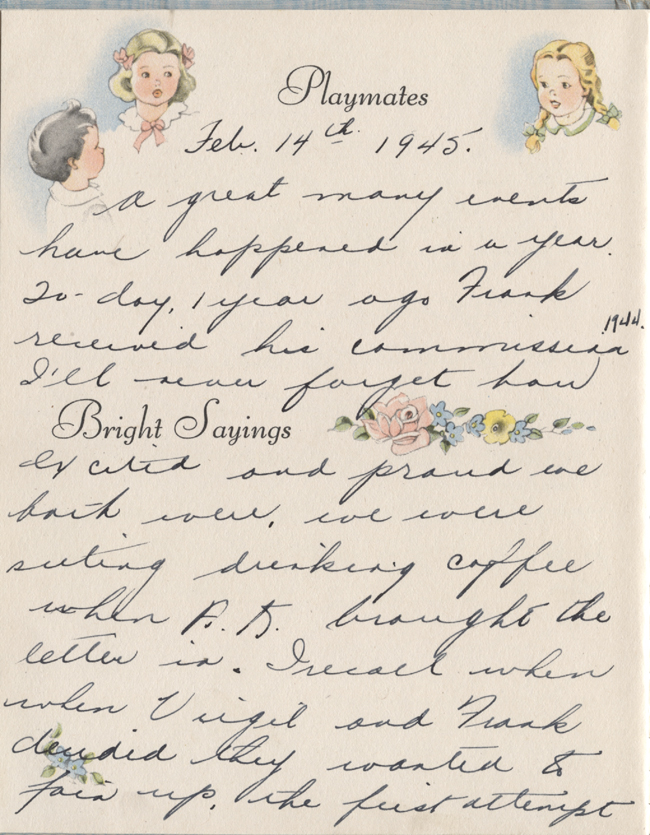 Playmates
Feb. 14th 1945.
A great many events
have happened in a year.
To-day, 1 year ago Frank
received his commission 1944.
I'll never forget how
Bright Sayings
excited and proud we
both were, we were
sitting drinking coffee
when A. K. brought the
letter in. I recall when
when Virgil and Frank
decided they wanted to
join up, the first attempt